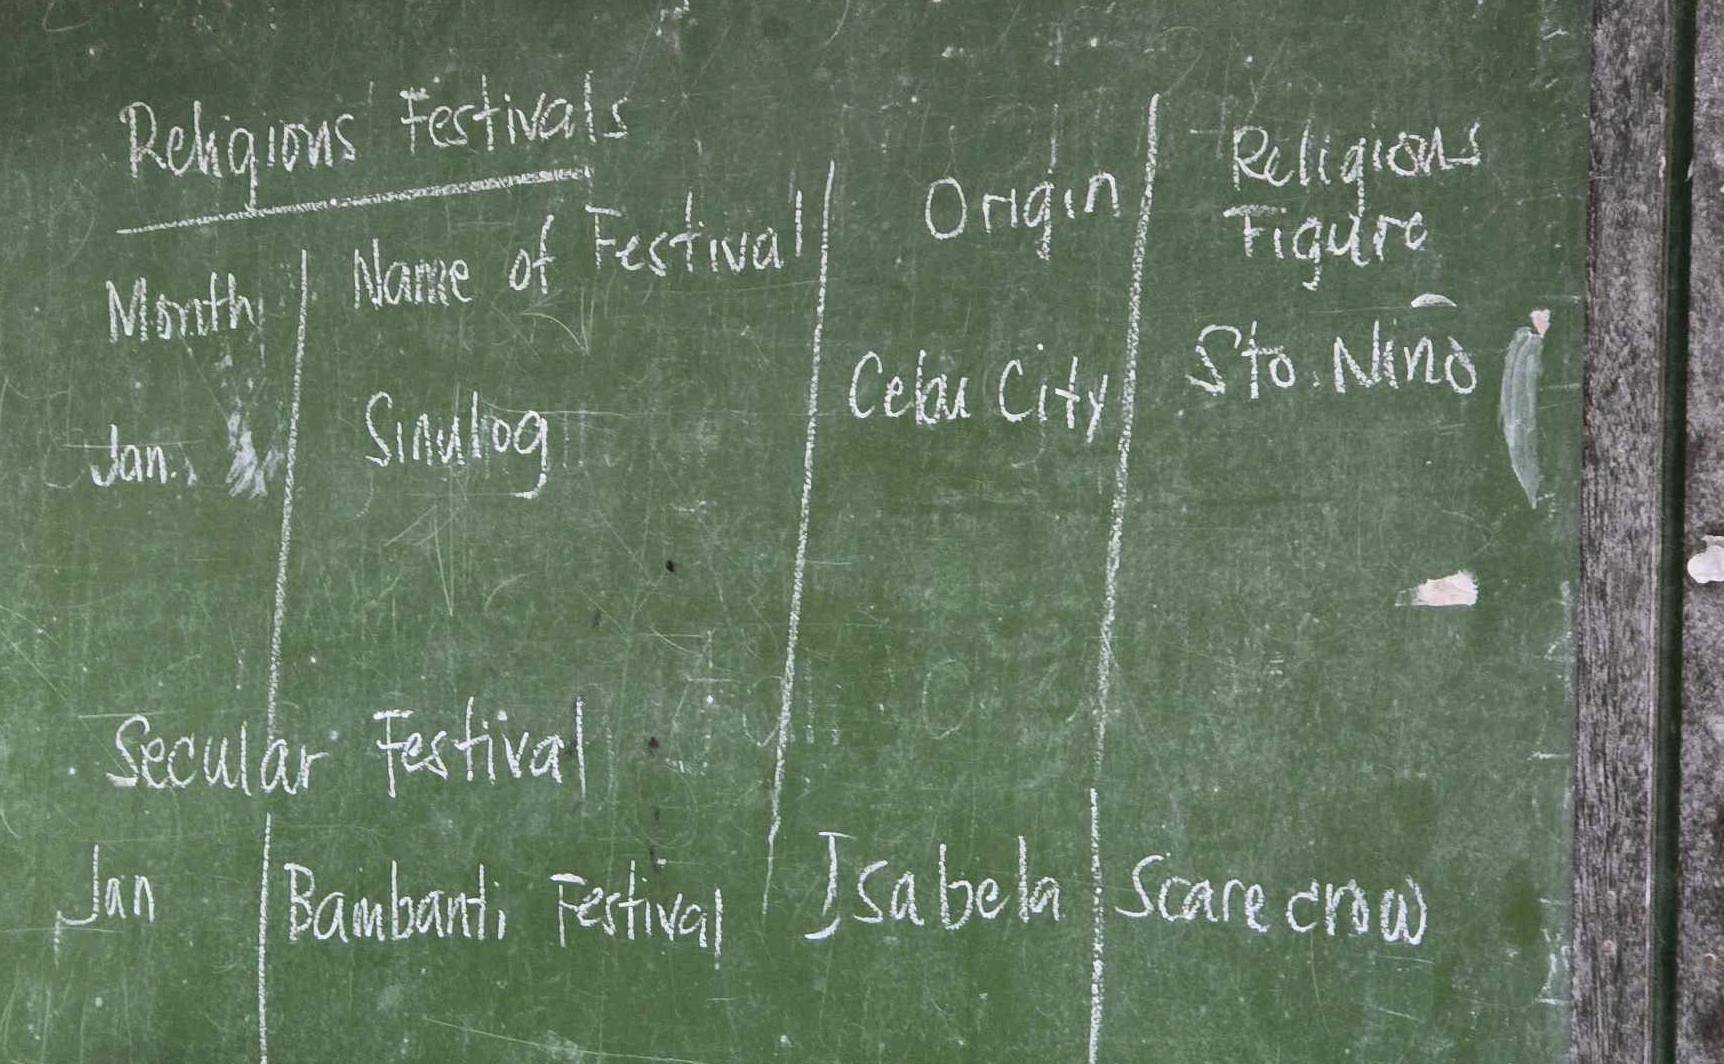 Religious Festivals
Month Name of Festival Origin Religious Figure
Jan. Sinulog Cebu City Sto. Niño
Secular Festival
Jan Bambanti Festival Isabela Scarecrow